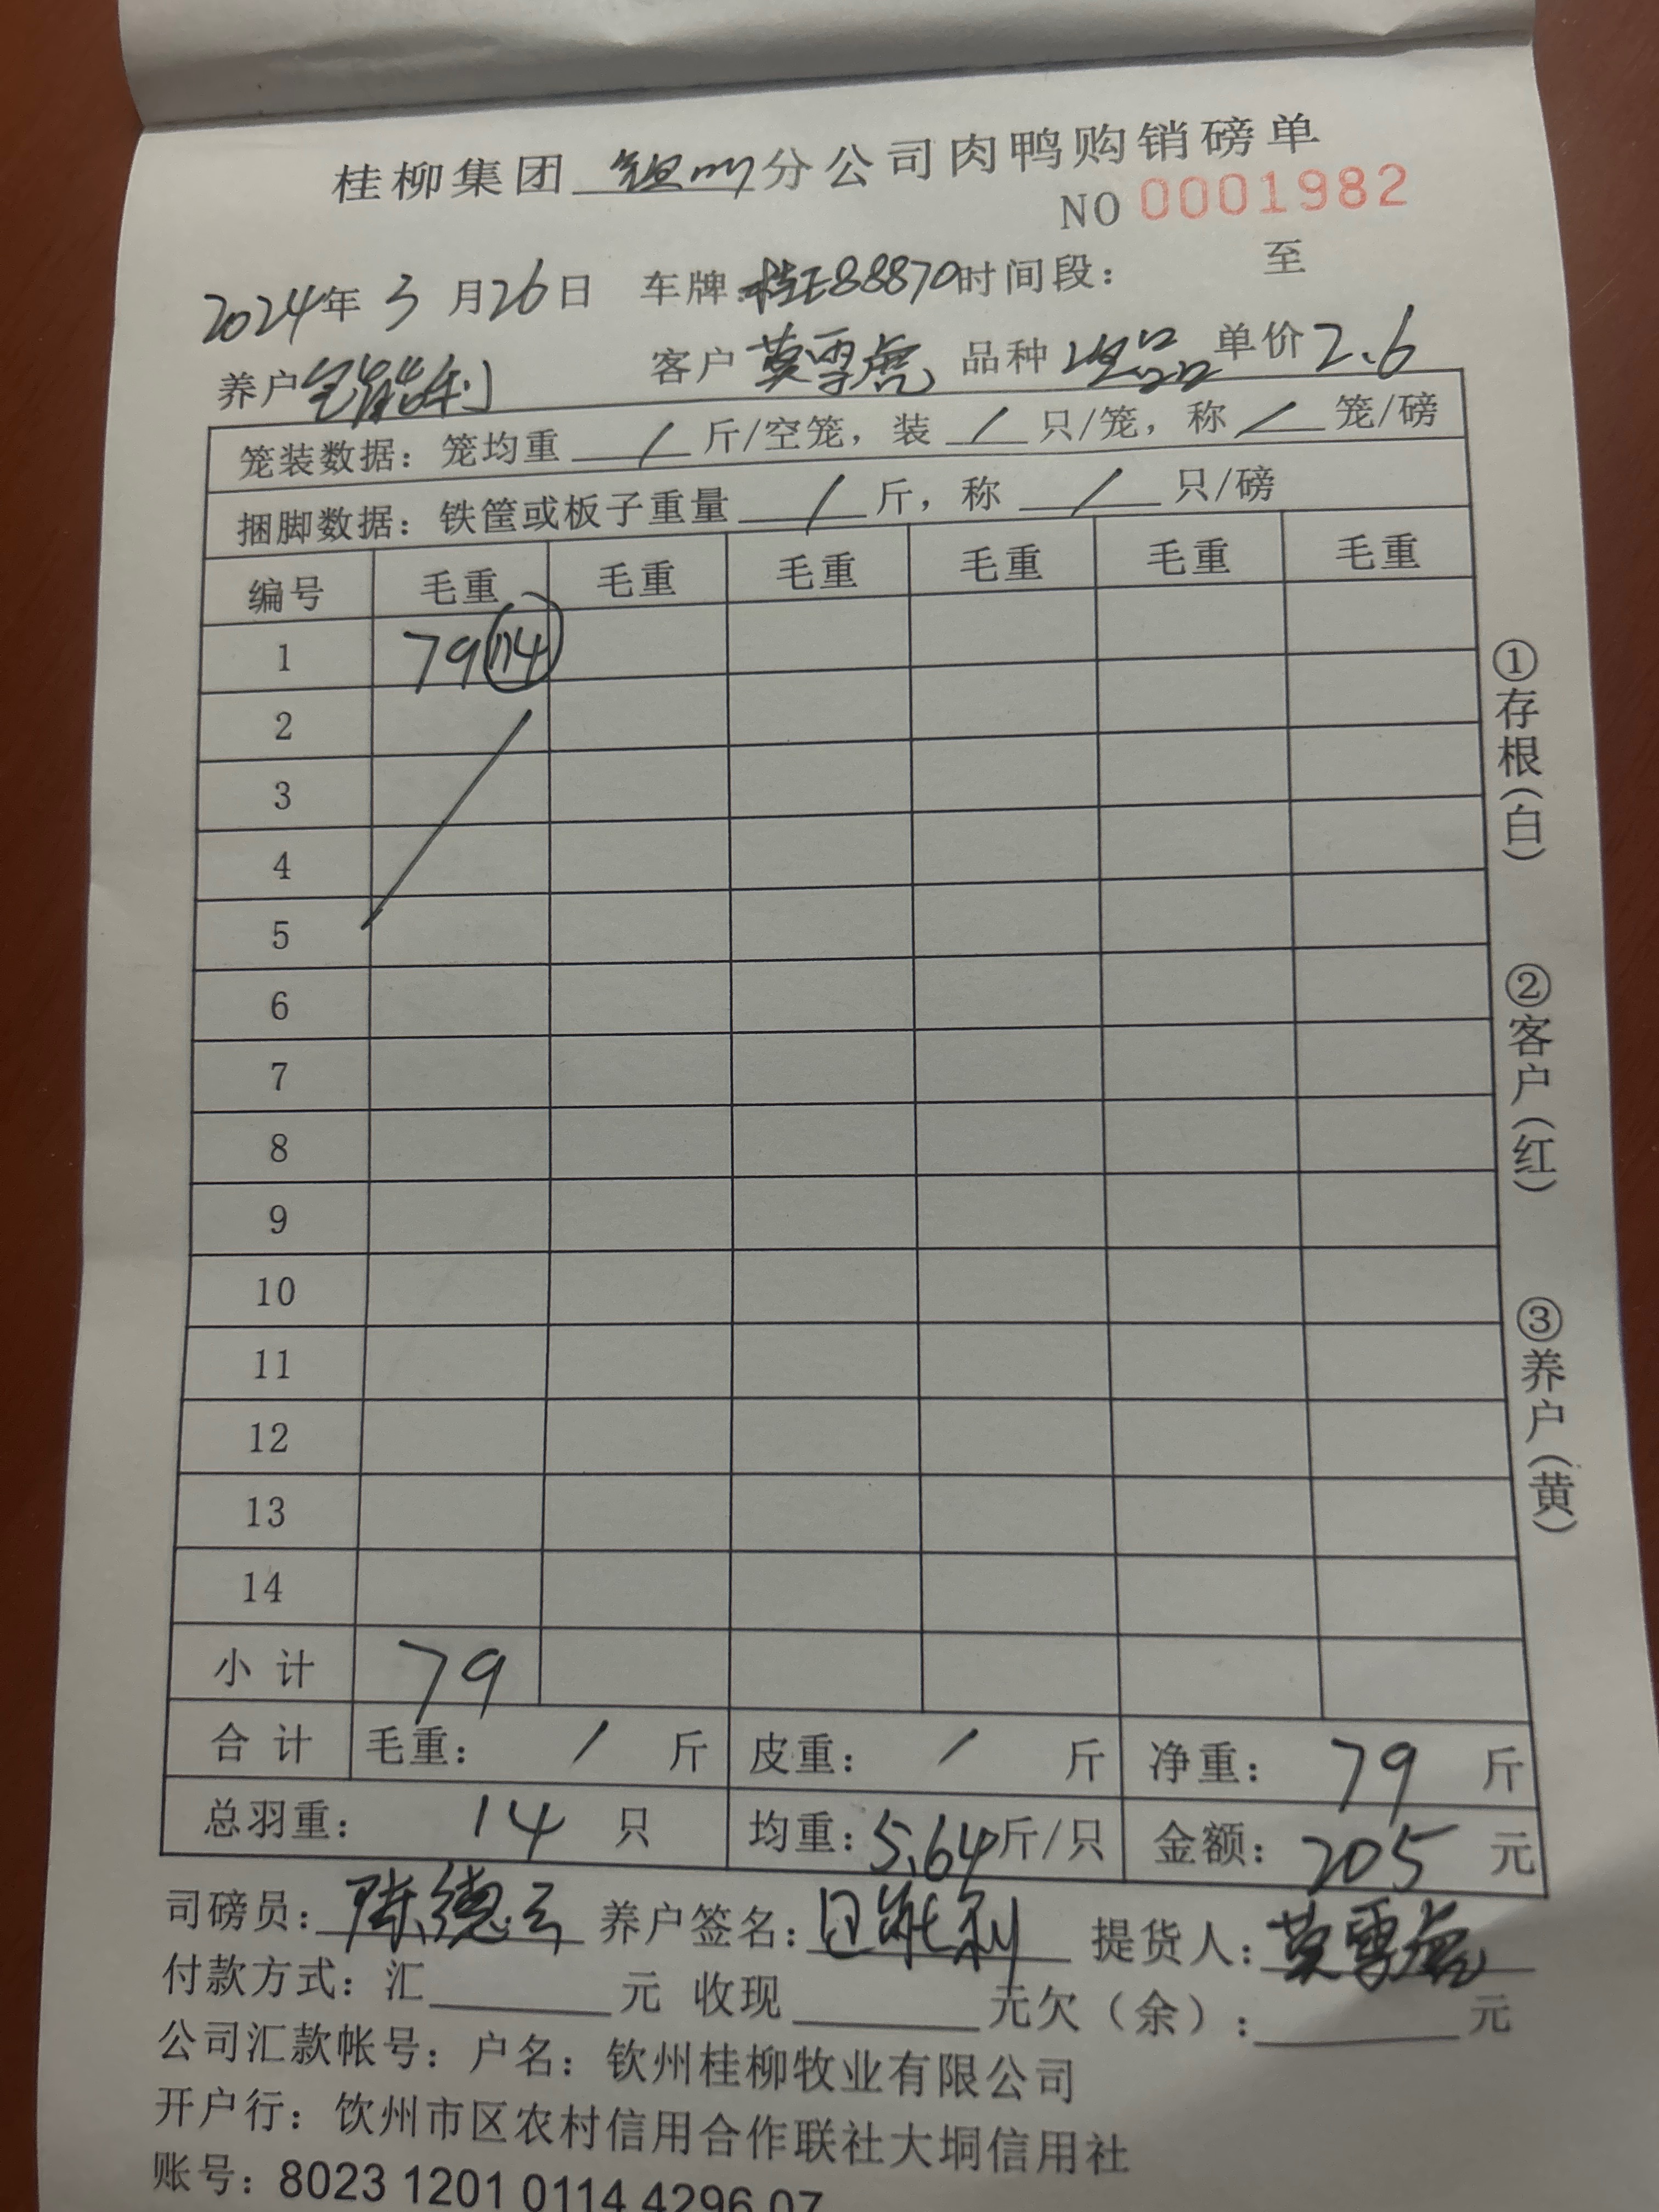 桂柳集团 钦州 分公司肉鸭购销磅单
NO 0001982
2024年 3 月 26 日 车牌:桂E88870 时间段: 至
养户 能利 客户 莫雪虎 品种 次品 单价 2.6
笼装数据:笼均重 / 斤/空笼,装 / 只/笼,称 / 笼/磅
捆脚数据:铁筐或板子重量 / 斤,称 / 只/磅
编号 毛重 毛重 毛重 毛重 毛重 毛重
1 79 (14)
2
3
4
5
6
7
8
9
10
11
12
13
14
小计 79
合计 毛重: / 斤 皮重: / 斤 净重: 79 斤
总羽重: 14 只 均重:5.64斤/只 金额: 205 元
司磅员:陈德云 养户签名: 能利 提货人:莫雪虎
付款方式:汇 元 收现 元欠(余): 元
公司汇款帐号:户名:钦州桂柳牧业有限公司
开户行:饮州市区农村信用合作联社大垌信用社
账号:8023 1201 0114 4296 07
①存根(白) ②客户(红) ③养户(黄)